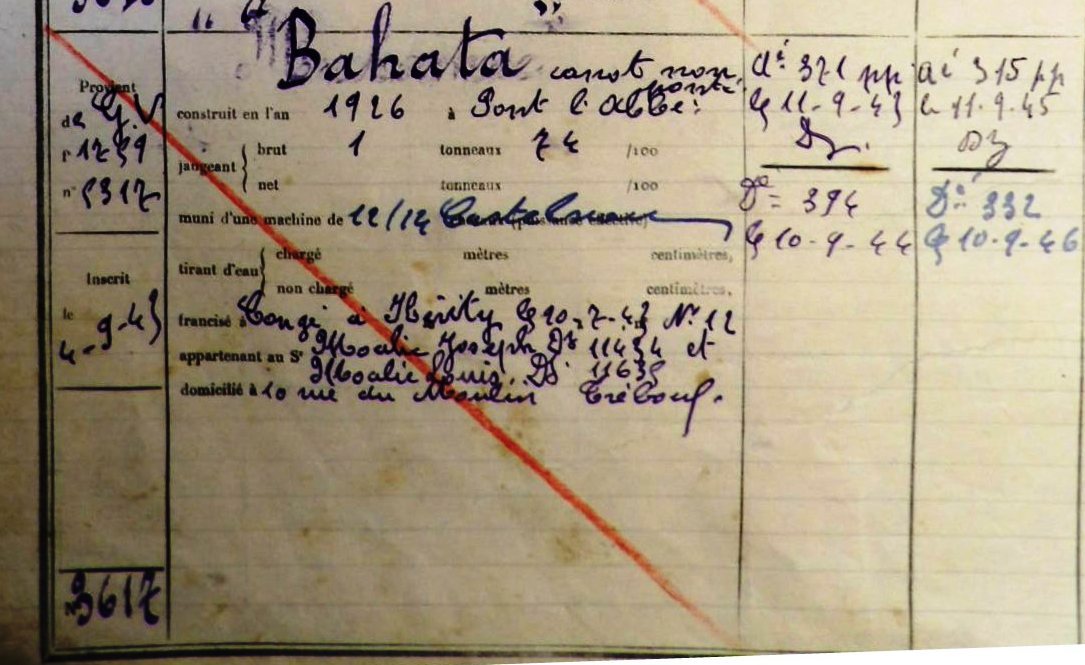 "Bahata" canot non ponté
Provient
de G.V
construit en l'an 1926 à Pont l'Abbé
fº 1239
nº 5317
jaugeant { brut 1 tonneaux 74 /100
net tonneaux /100
muni d'une machine de 12/14
tirant d'eau { chargé mètres centimètres,
non chargé mètres centimètres,
Inscrit
le
4-9-43
francisé à Congé à Kérity le 10-7-43 Nº 12
appartenant au Sr Moalic Joseph Dz 11434 et
Moalic Louis. Dz 11635
domicilié à 10 rue du Moulin Tréboul.
Nº 3617
Dé: 321 pp
le 11-9-43
Dz.
Dº = 394
le 10-9-44
Dé 315 pp
le 11.9.45
Dz
Dº = 332
le 10-9-46